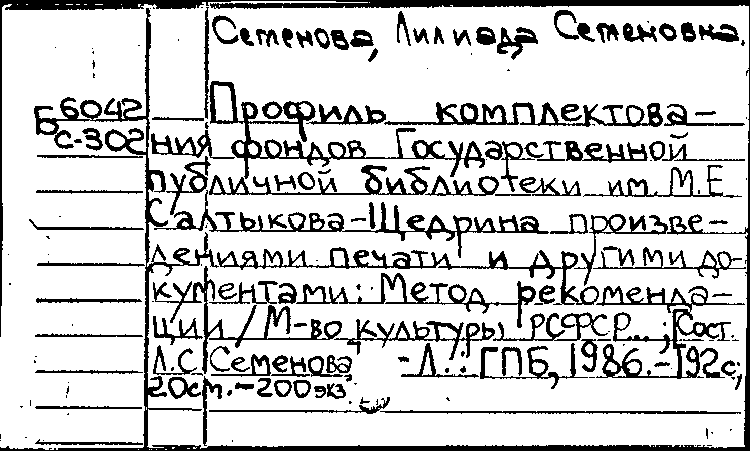 Семенова, Лилиада Семеновна.
Б6042
с-302
Профиль комплектова-
ния фондов Государственной
публичной библиотеки им. М.Е
Салтыкова-Щедрина произве-
дениями печати и другими до-
кументами: Метод. рекоменда-
ции / М-во культуры РСФСР...; Сост.
Л.С. Семенова. - Л.: ГПБ, 1986.-192с;
20см.-200экз.